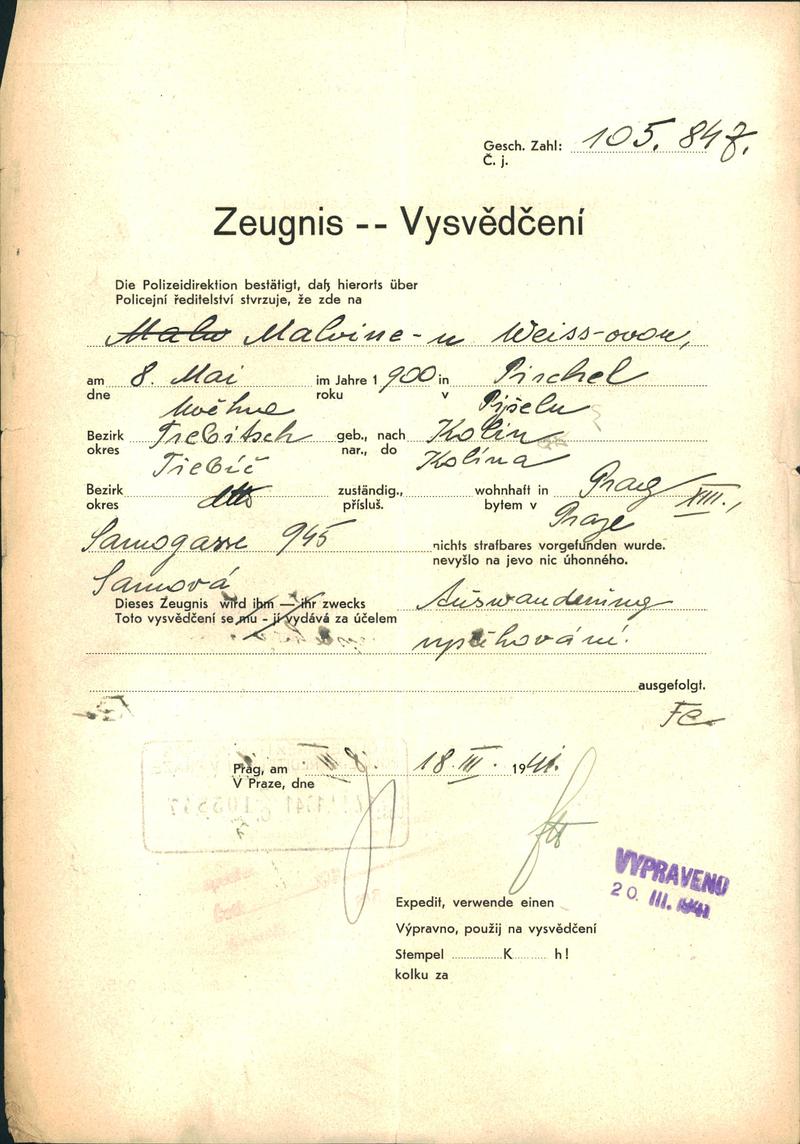 Gesch. Zahl: 105.847.
Č. j.
Zeugnis -- Vysvědčení
Die Polizeidirektion bestätigt, daß hierorts über
Policejní ředitelství stvrzuje, že zde na
Malvine-u Weiss-ovou,
am 8. Mai im Jahre 1900 in Pischel
dne května roku v Pyšelu
Bezirk Trebitsch geb., nach Kolin
okres Třebíč nar., do Kolína
Bezirk dtto zuständig., wohnhaft in Prag XIII.,
okres přísluš. bytem v Praze
Samogasse 945 nichts strafbares vorgefunden wurde.
Samová nevyšlo na jevo nic úhonného.
Dieses Zeugnis wird ihm — ihr zwecks Auswanderung
Toto vysvědčení se mu - jí vydává za účelem vystěhování.
ausgefolgt.
Prag, am 18. III. 1941.
V Praze, dne
VYPRAVENO
20. III. 1941
Expedit, verwende einen
Výpravno, použij na vysvědčení
Stempel K h!
kolku za